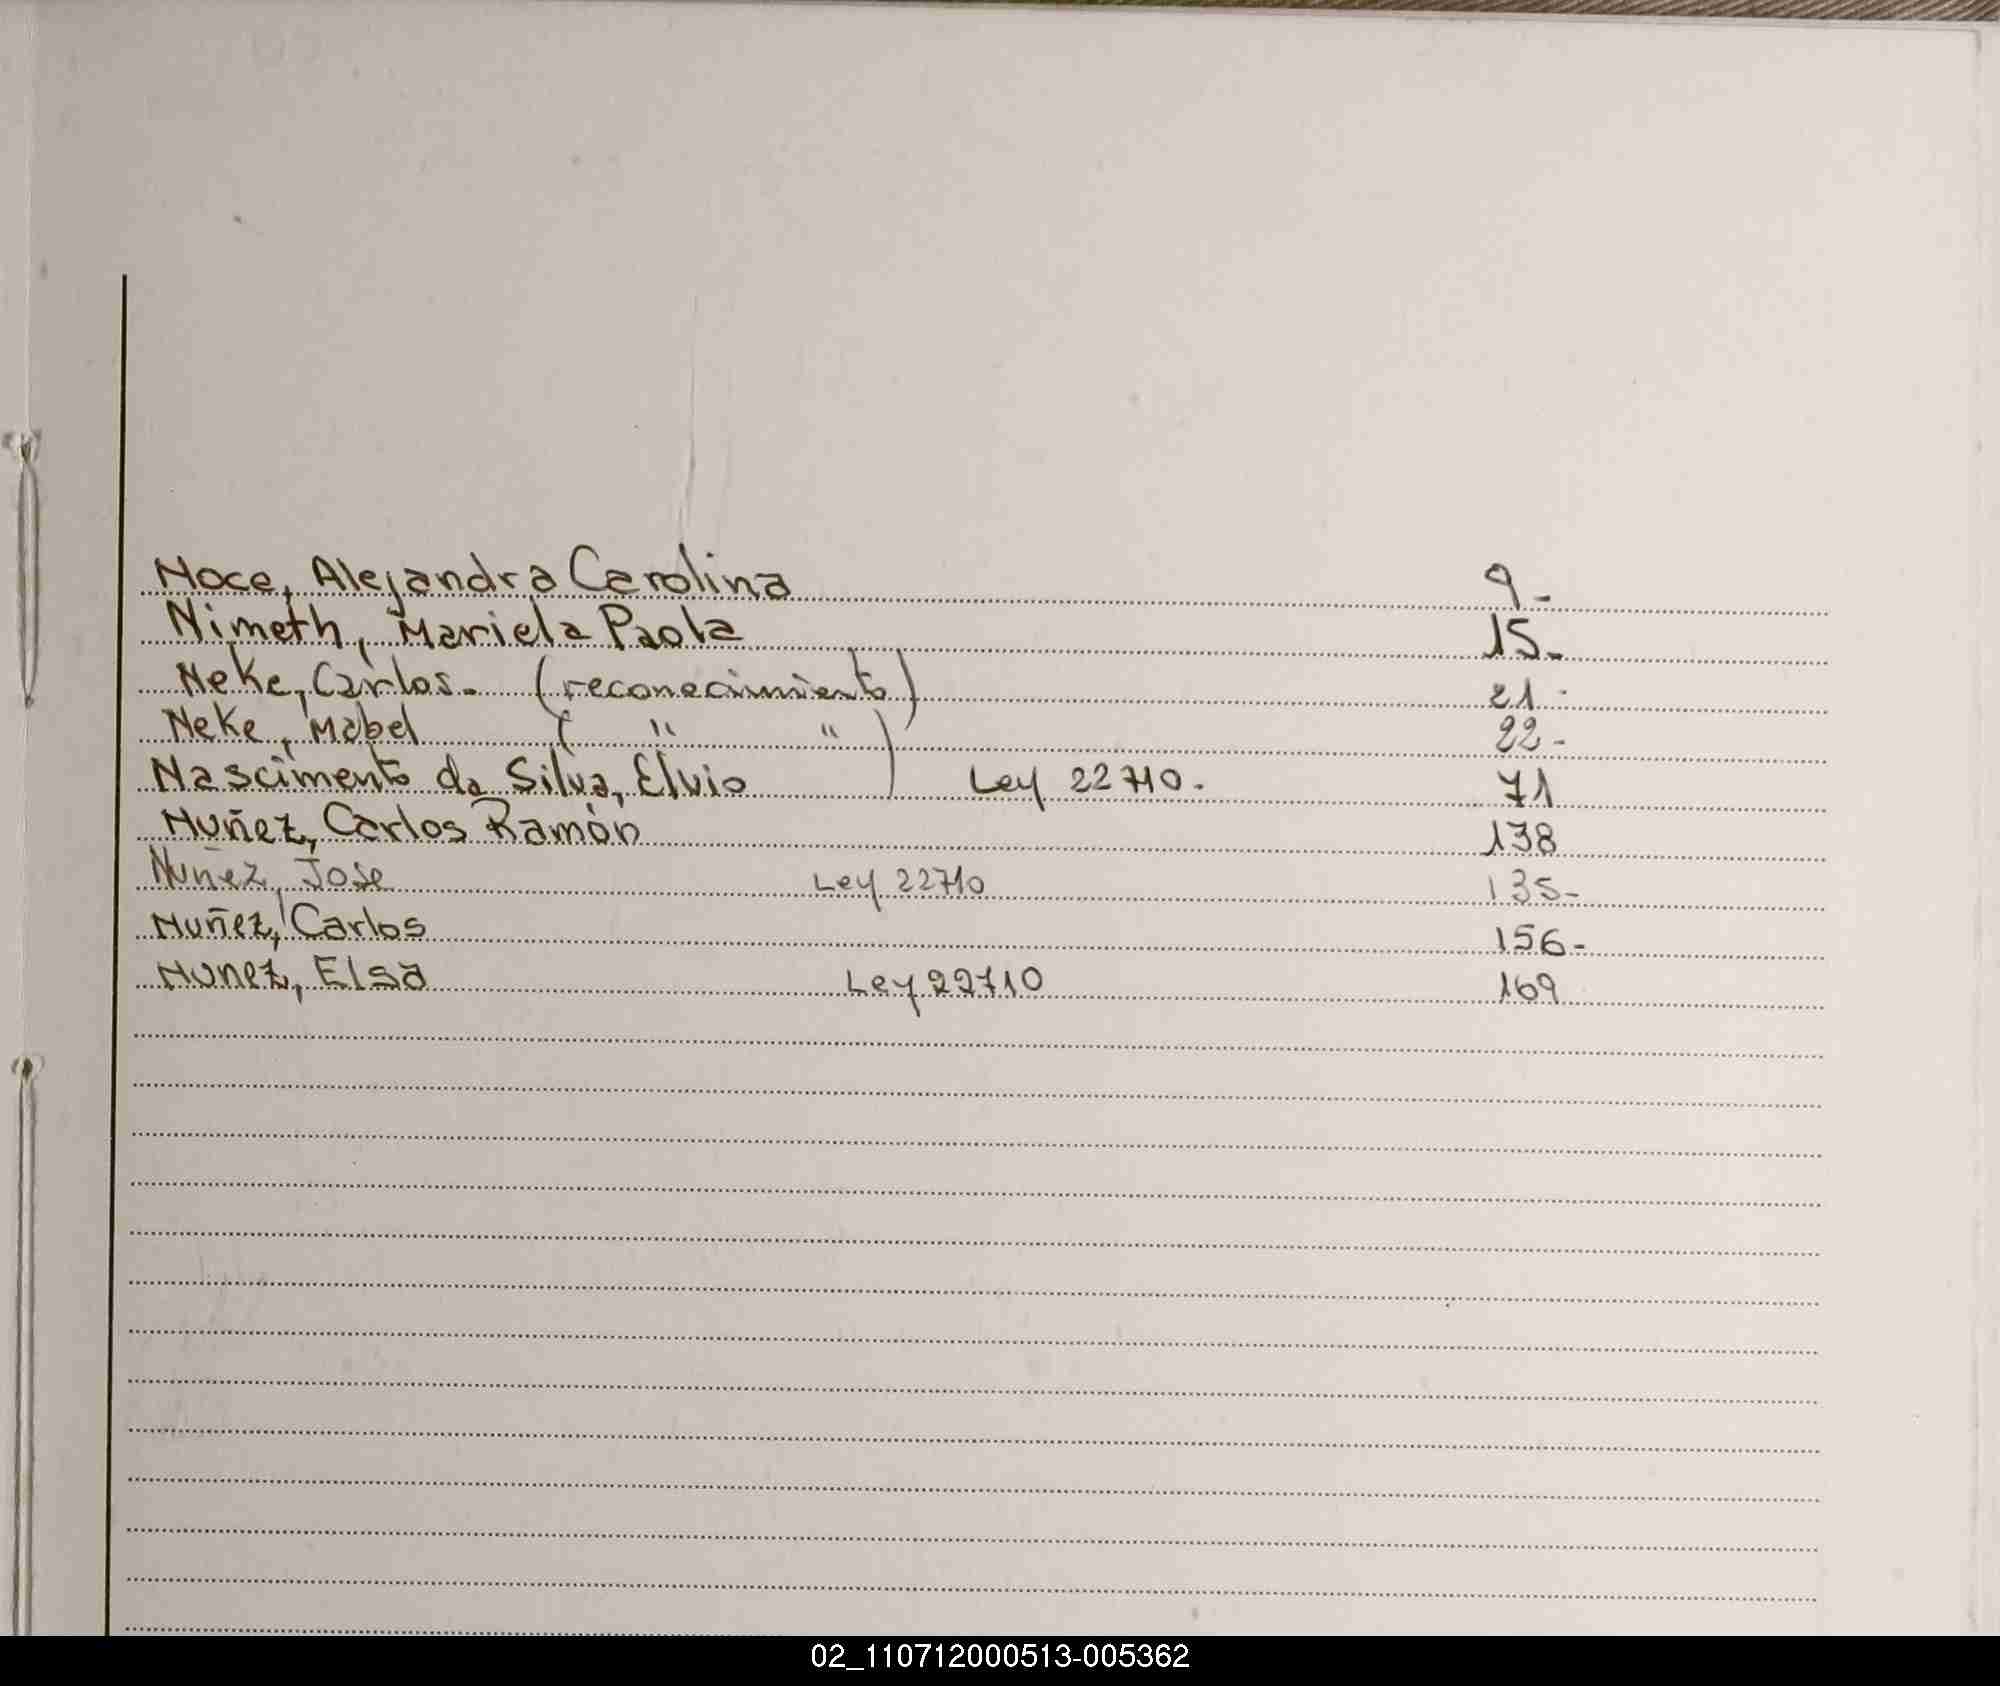 Noce, Alejandra Carolina 9-
Nimeth, Mariela Paola 15-
Neke, Carlos. (reconocimiento) 21-
Neke, Mabel ( " " ) 22-
Nascimento da Silva, Elvio Ley 22710. 71
Nuñez, Carlos Ramón 138
Nuñez, Jose Ley 22710 135-
Nuñez, Carlos 156-
Nunez, Elsa Ley 22710 169
02_110712000513-005362